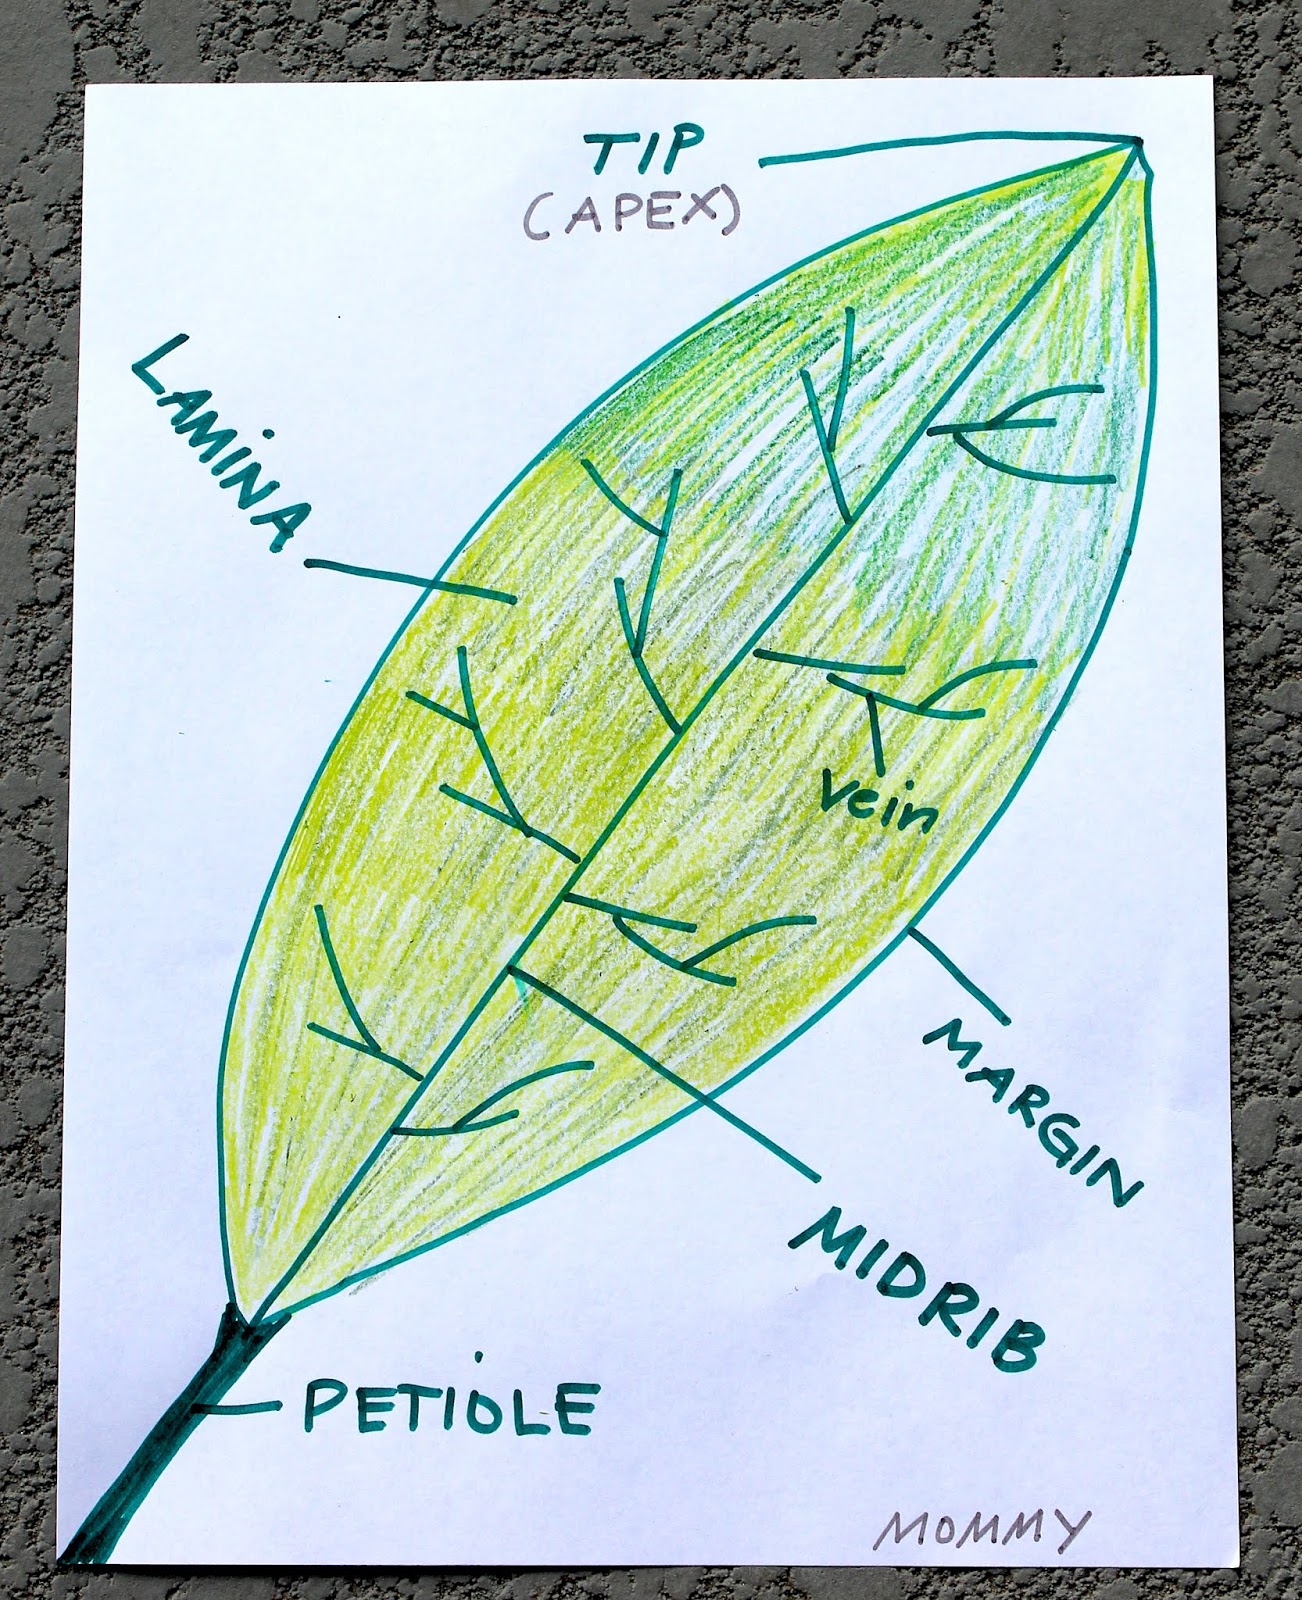 TIP
(APEX)
LAMINA
vein
MARGIN
MIDRIB
PETIOLE
MOMMY